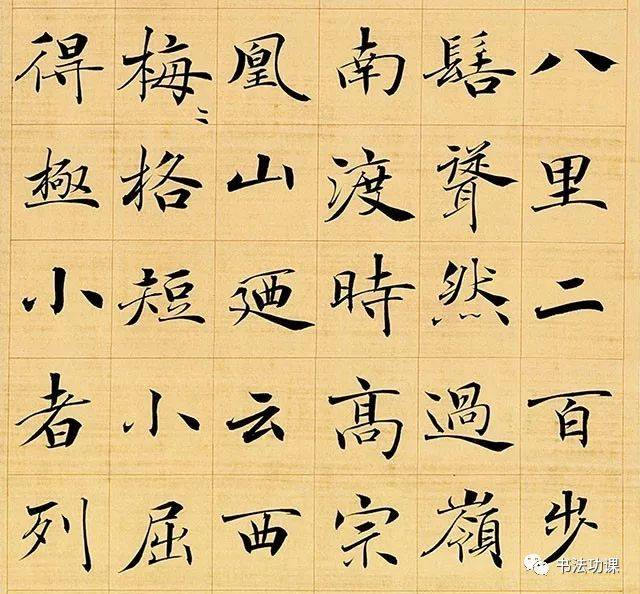 八里二百步
聳然過嶺
南渡時髙宗
凰山廼云西
梅〻格短小屈
得極小者列
书法功课